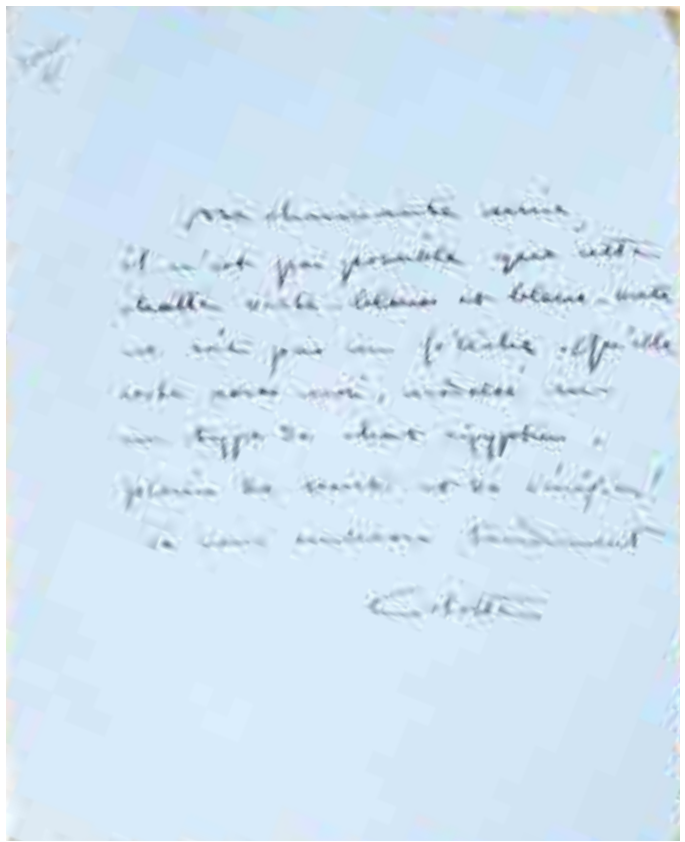 ma charmante amie,
il n'est pas possible que cette
chatte verte blanc et blanc verte
ne soit pas un fétiche. Qu'elle
reste avec moi, modelée sur
un type de chat égyptien,
pleine de et de bénéfices!
Je vous embrasse tendrement
Colette